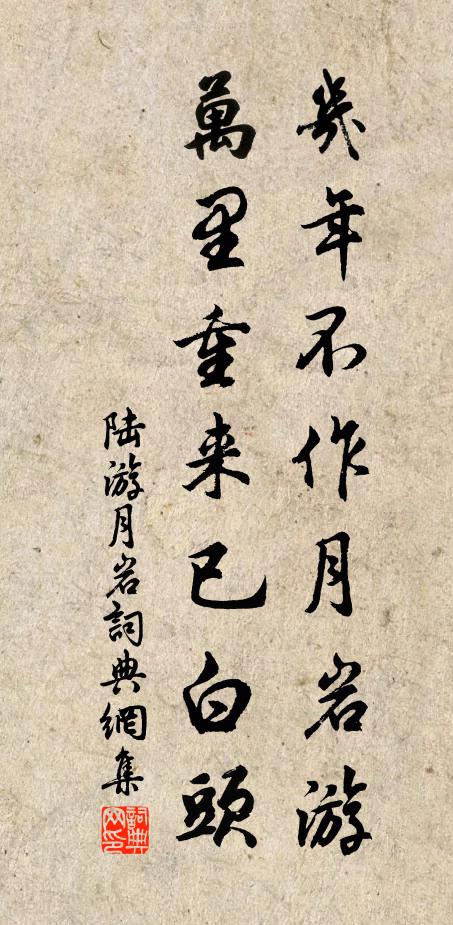 幾年不作月岩游
萬里重来已白頭
陆游月岩詞典網集
詞典网印